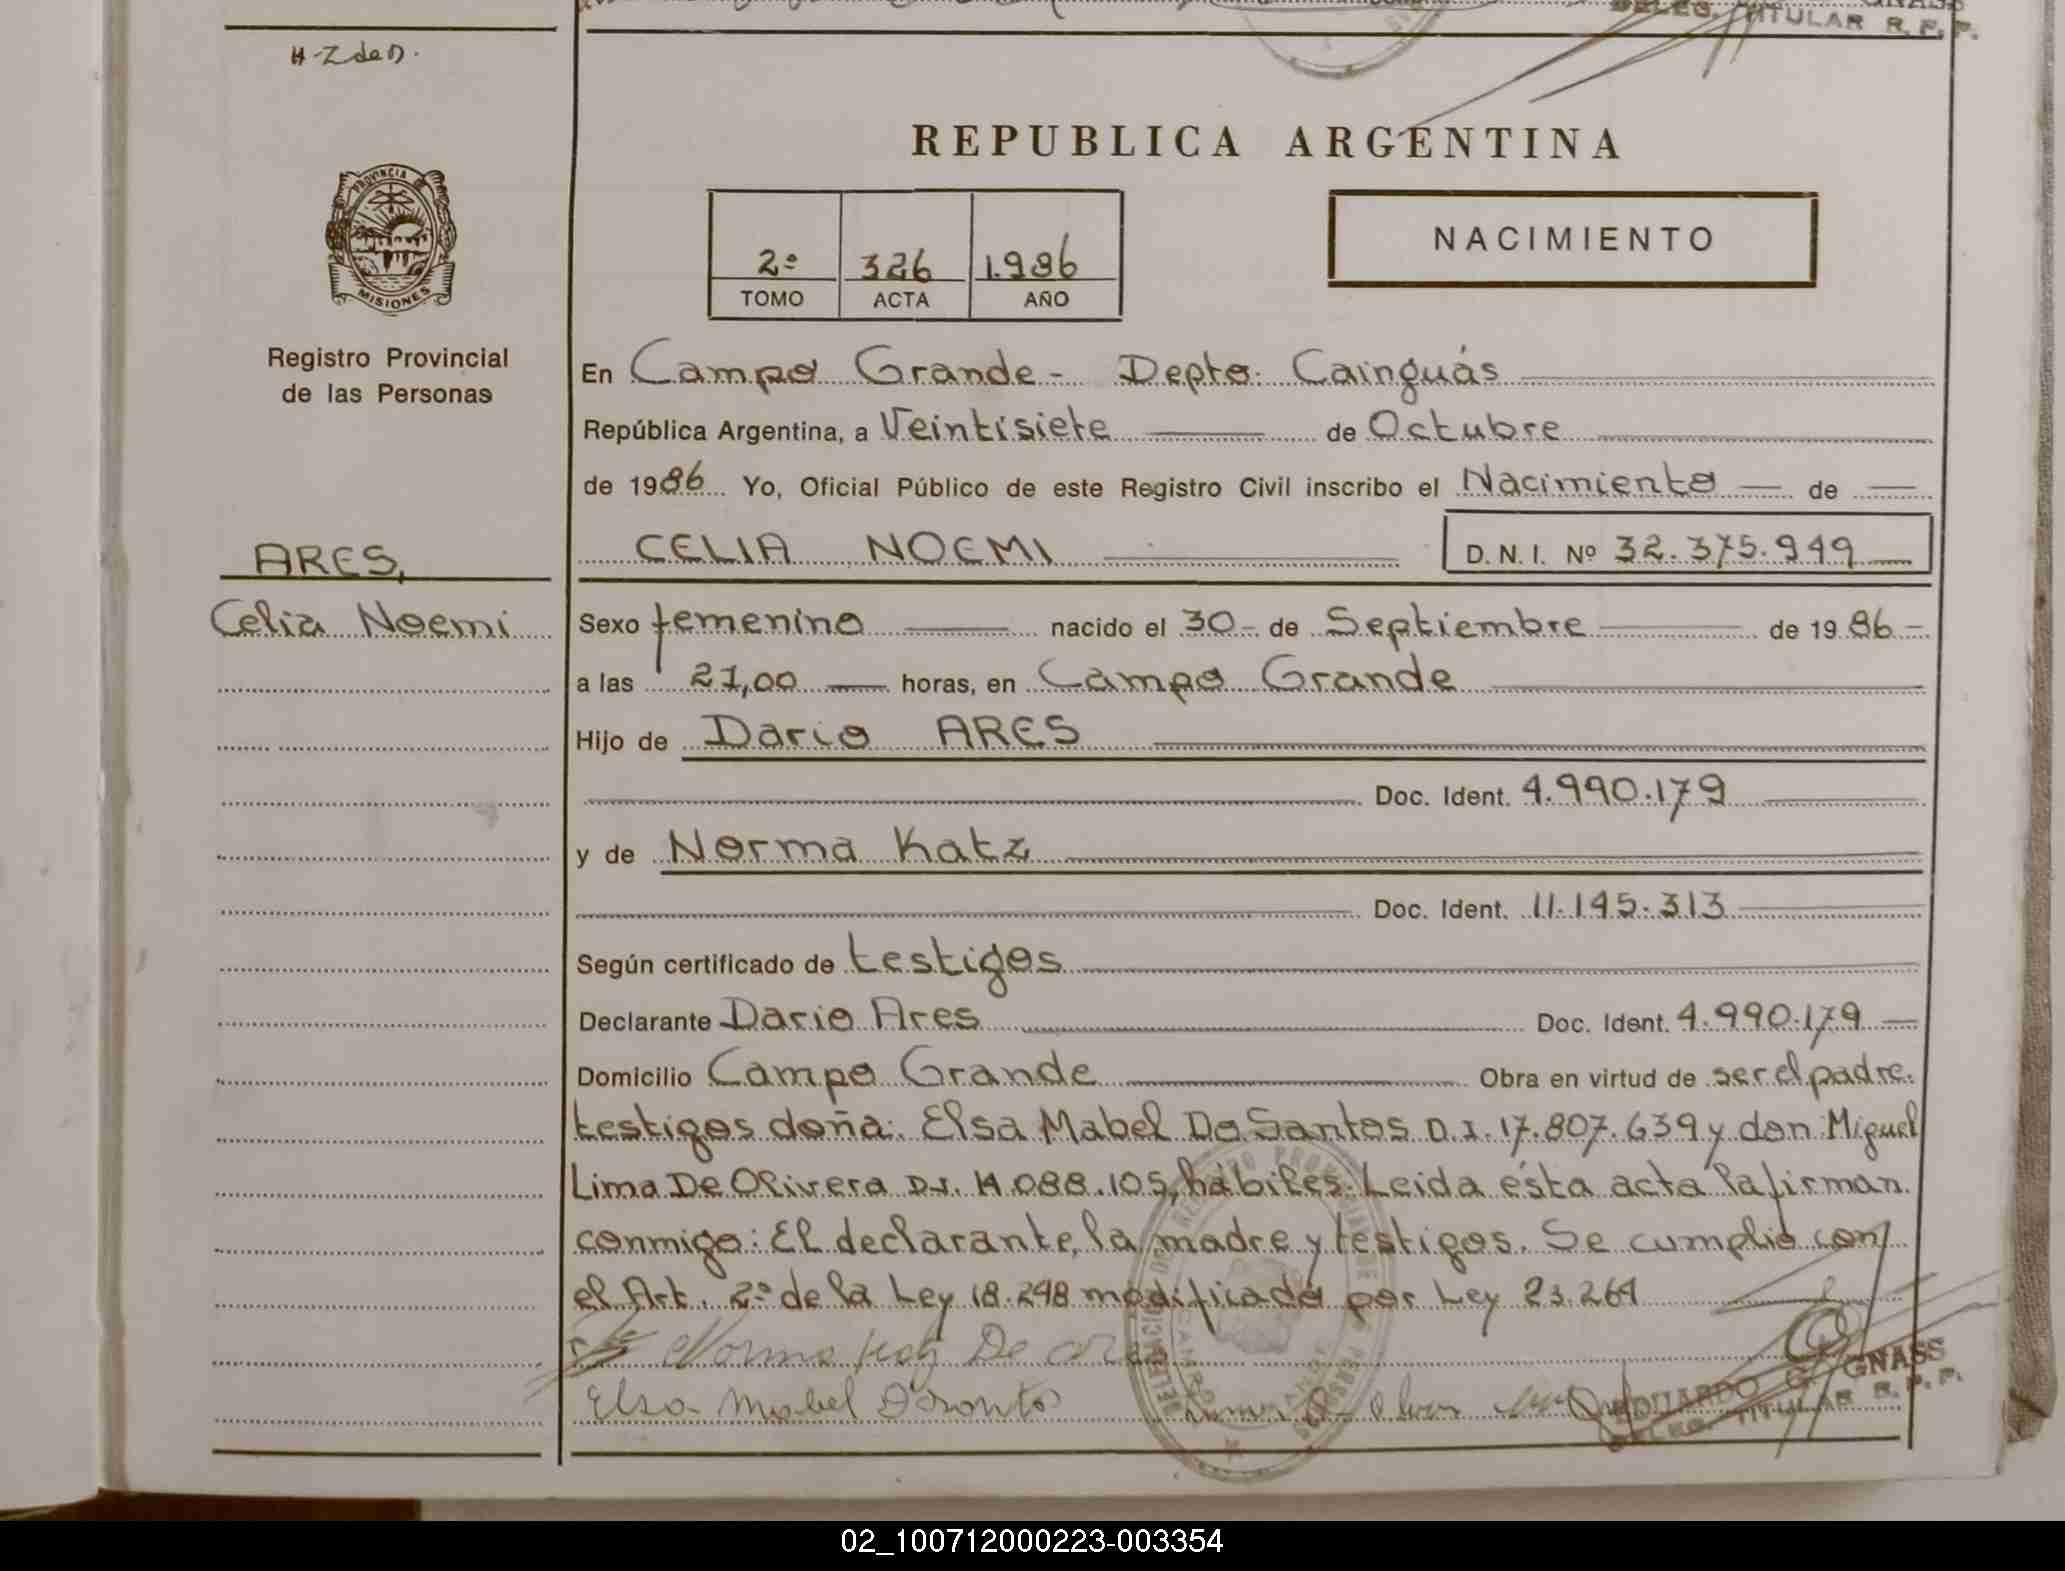 DELEG. TITULAR R.P.P.
H-Z de D.
REPUBLICA ARGENTINA
PROVINCIA DE
MISIONES
NACIMIENTO
2º 326 1.986
TOMO ACTA AÑO
Registro Provincial
de las Personas
En Campo Grande - Depto. Cainguás
República Argentina, a Veintisiete de Octubre
de 1986 Yo, Oficial Público de este Registro Civil inscribo el Nacimiento de
CELIA NOEMI D. N. I. Nº 32.375.949
ARES,
Celia Noemi
Sexo femenino nacido el 30 - de Septiembre de 19 86 -
a las 21,00 horas, en Campo Grande
Hijo de Dario ARES
Doc. Ident. 4.990.179
y de Norma Katz
Doc. Ident. 11.145.313
Según certificado de testigos
Declarante Dario Ares Doc. Ident. 4.990.179
Domicilio Campo Grande Obra en virtud de ser el padre.
testigos doña: Elsa Mabel Do Santos D.I. 17.807.639 y don Miguel
Lima De Olivera D.I. 14.088.105, hábiles. Leida ésta acta la firman
conmigo: El declarante, la madre y testigos. Se cumplió con
el Art. 2º de la Ley 18.248 modificado por Ley 23.264
Norma De
Elsa Mabel Dosantos
LEONARDO G. GNASS
DELEG. TITULAR R.P.P.
02_100712000223-003354